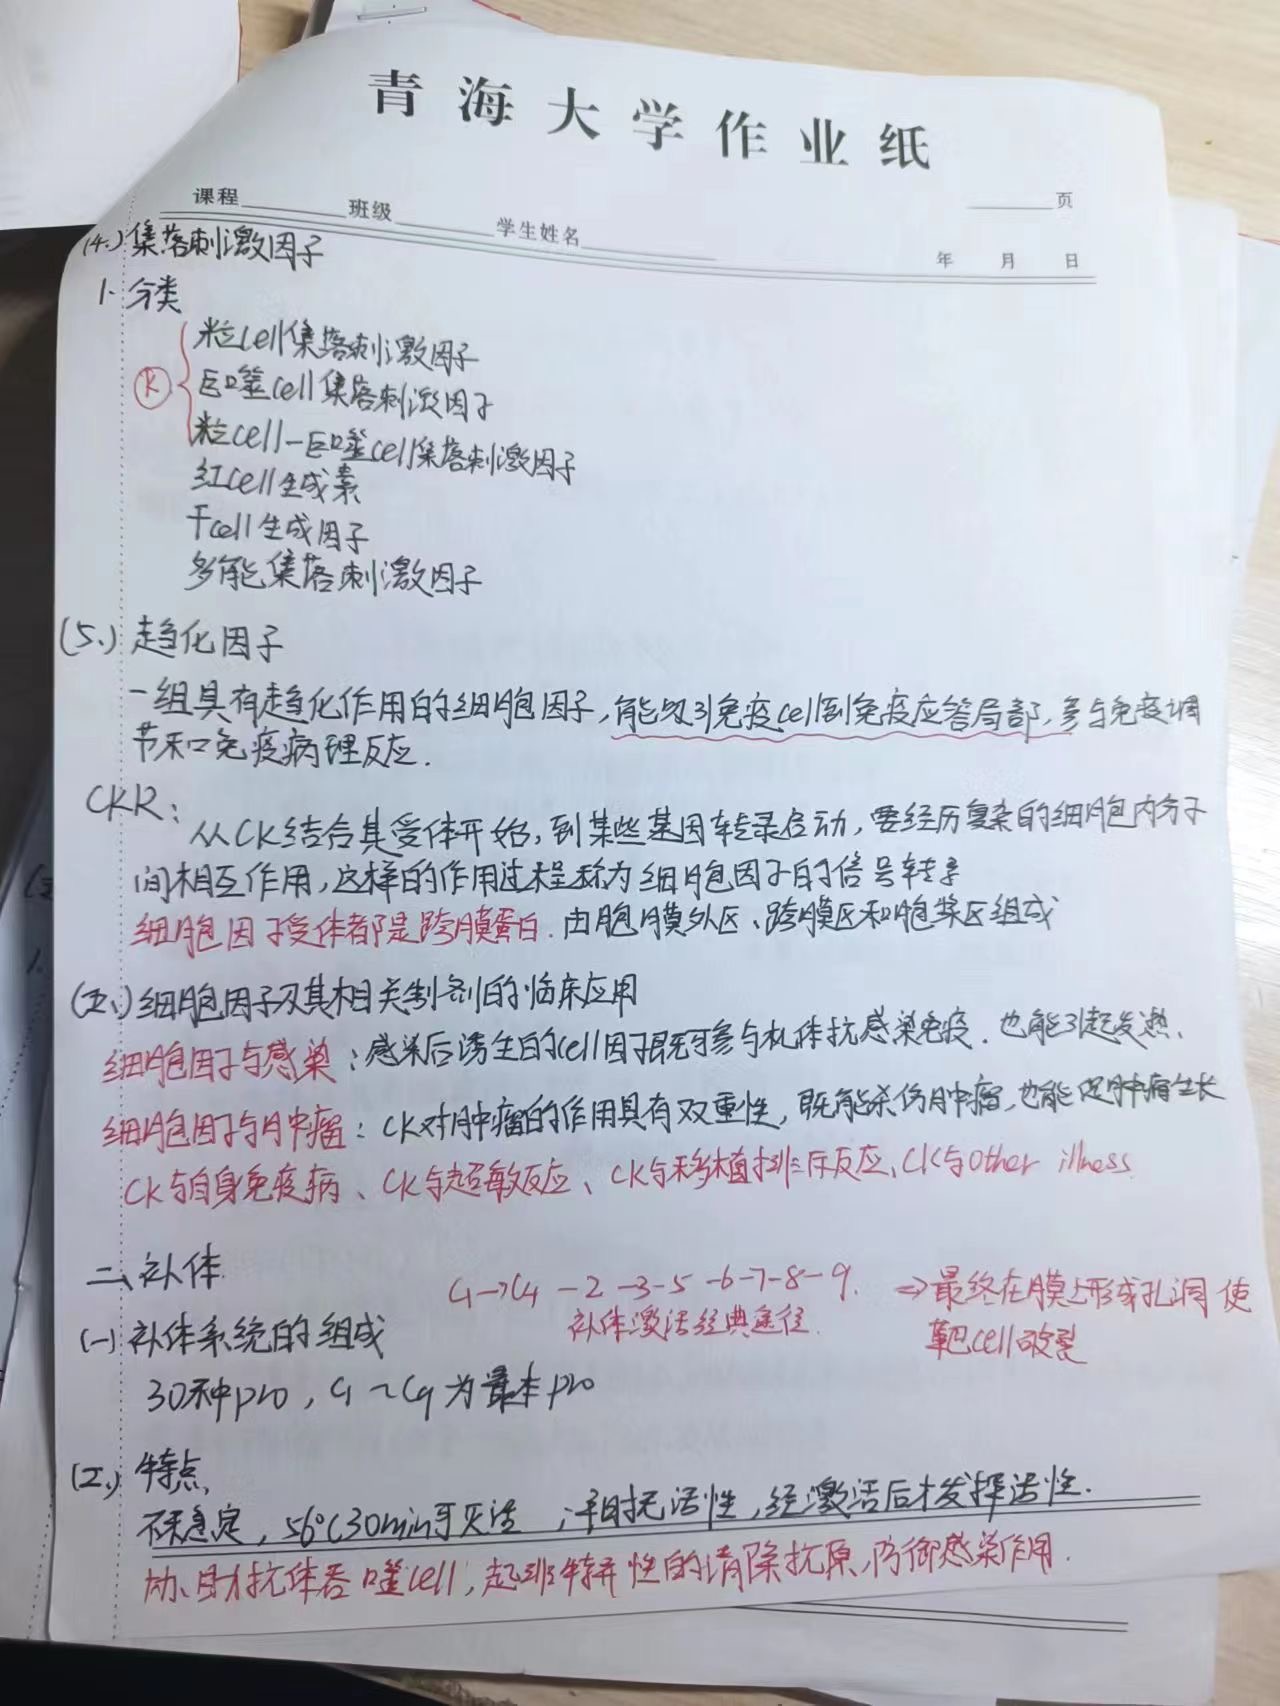 青海大学作业纸
课程 班级 学生姓名 页
年 月 日
(4.) 集落刺激因子
1. 分类
粒cell集落刺激因子
K 巨噬cell集落刺激因子
粒cell-巨噬cell集落刺激因子
红cell生成素
干cell生成因子
多能集落刺激因子
(5.) 趋化因子
一组具有趋化作用的细胞因子,能吸引免疫cell到免疫应答局部,参与免疫调
节和免疫病理反应.
CKR:
从CK结合其受体开始,到某些基因转录启动,要经历复杂的细胞内分子
间相互作用,这样的作用过程称为细胞因子的信号转导
细胞因子受体都是跨膜蛋白.由胞膜外区、跨膜区和胞浆区组成
(五.) 细胞因子及其相关制剂的临床应用
细胞因子与感染:感染后诱生的cell因子既可参与机体抗感染免疫.也能引起发热.
细胞因子与肿瘤:CK对肿瘤的作用具有双重性,既能杀伤肿瘤,也能促肿瘤生长
CK与自身免疫病、CK与超敏反应、CK与移植排斥反应、CK与other illness.
二、补体
C1→C4-2-3-5-6-7-8-9. ⇒最终在膜上形成孔洞使
补体激活经典途径. 靶cell破裂
(一) 补体系统的组成
30种pro, C1~C9为最本pro
(二.) 特点
不稳定,56℃30min可灭活,平时无活性,经激活后才发挥活性.
抗体吞噬cell,起非特异性的清除抗原,防御感染作用.